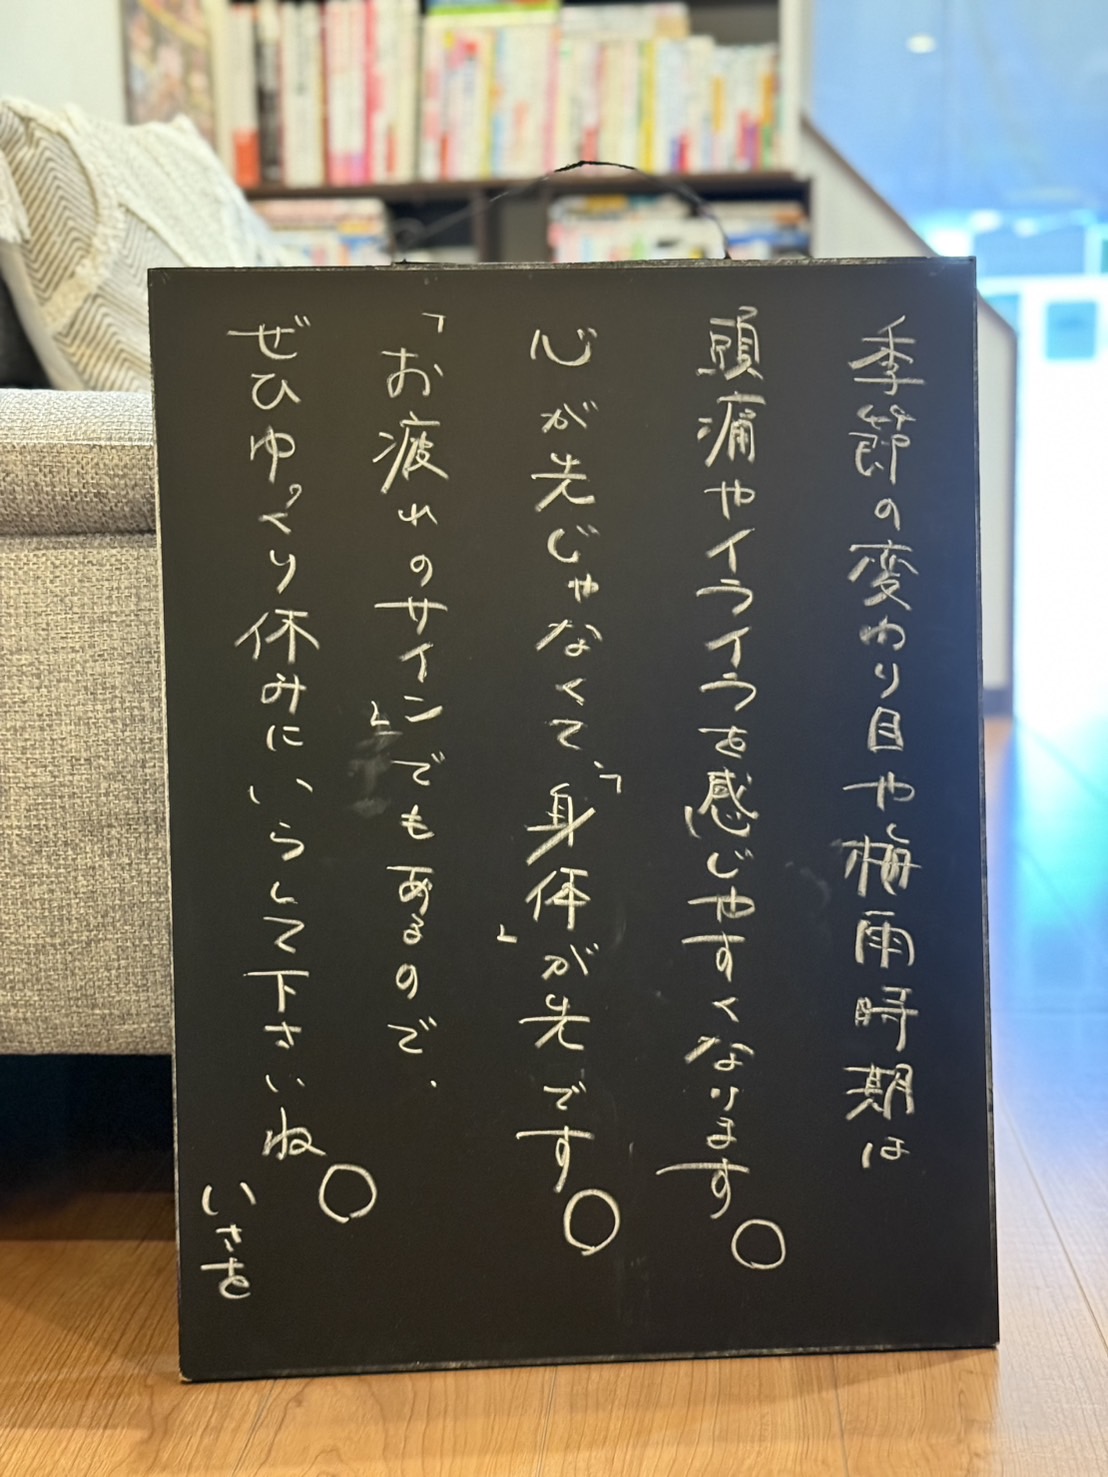 季節の変わり目や梅雨時期は
頭痛やイライラを感じやすくなります。
心が先じゃなくて、「身体が先」です。
「お疲れのサイン」でもあるので、
ぜひゆっくり休みにいらして下さいね。
いさを